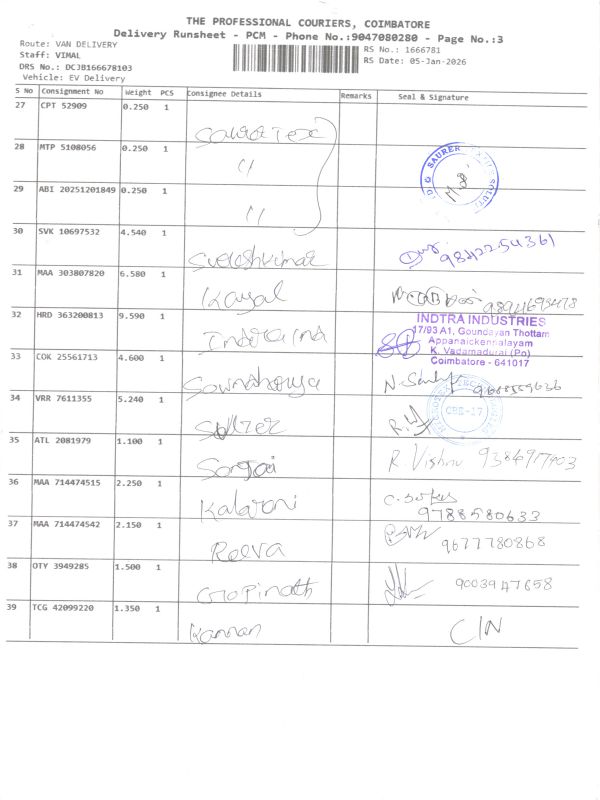 THE PROFESSIONAL COURIERS, COIMBATORE
Delivery Runsheet - PCM - Phone No.:9047080280 - Page No.:3
Route: VAN DELIVERY
RS No.: 1666781
Staff: VIMAL
RS Date: 05-Jan-2026
DRS No.: DCJB166678103
Vehicle: EV Delivery
S No Consignment No Weight PCS Consignee Details Remarks Seal & Signature
27 CPT 52909 0.250 1
28 MTP 5108056 0.250 1 11 SAURER
29 ABI 20251201849 0.250 1 11
30 SVK 10697532 4.540 1 Sureshkumar 9842254361
31 MAA 303807820 6.580 1 Kayal
32 HRD 363200813 9.590 1 INDTRA INDUSTRIES
17/93 A1, Goundayan Thottam
Appanaickenpalayam
K. Vadamadurai (Po)
Coimbatore - 641017
33 COK 25561713 4.600 1
34 VRR 7611355 5.240 1 CBE-17
35 ATL 2081979 1.100 1 R. Vishnu
36 MAA 714474515 2.250 1 Kalarani 9788580633
37 MAA 714474542 2.150 1 Reeva 9677780868
38 OTY 3949285 1.500 1 Gopinath 9003947658
39 TCG 42099220 1.350 1 Kannan C/N